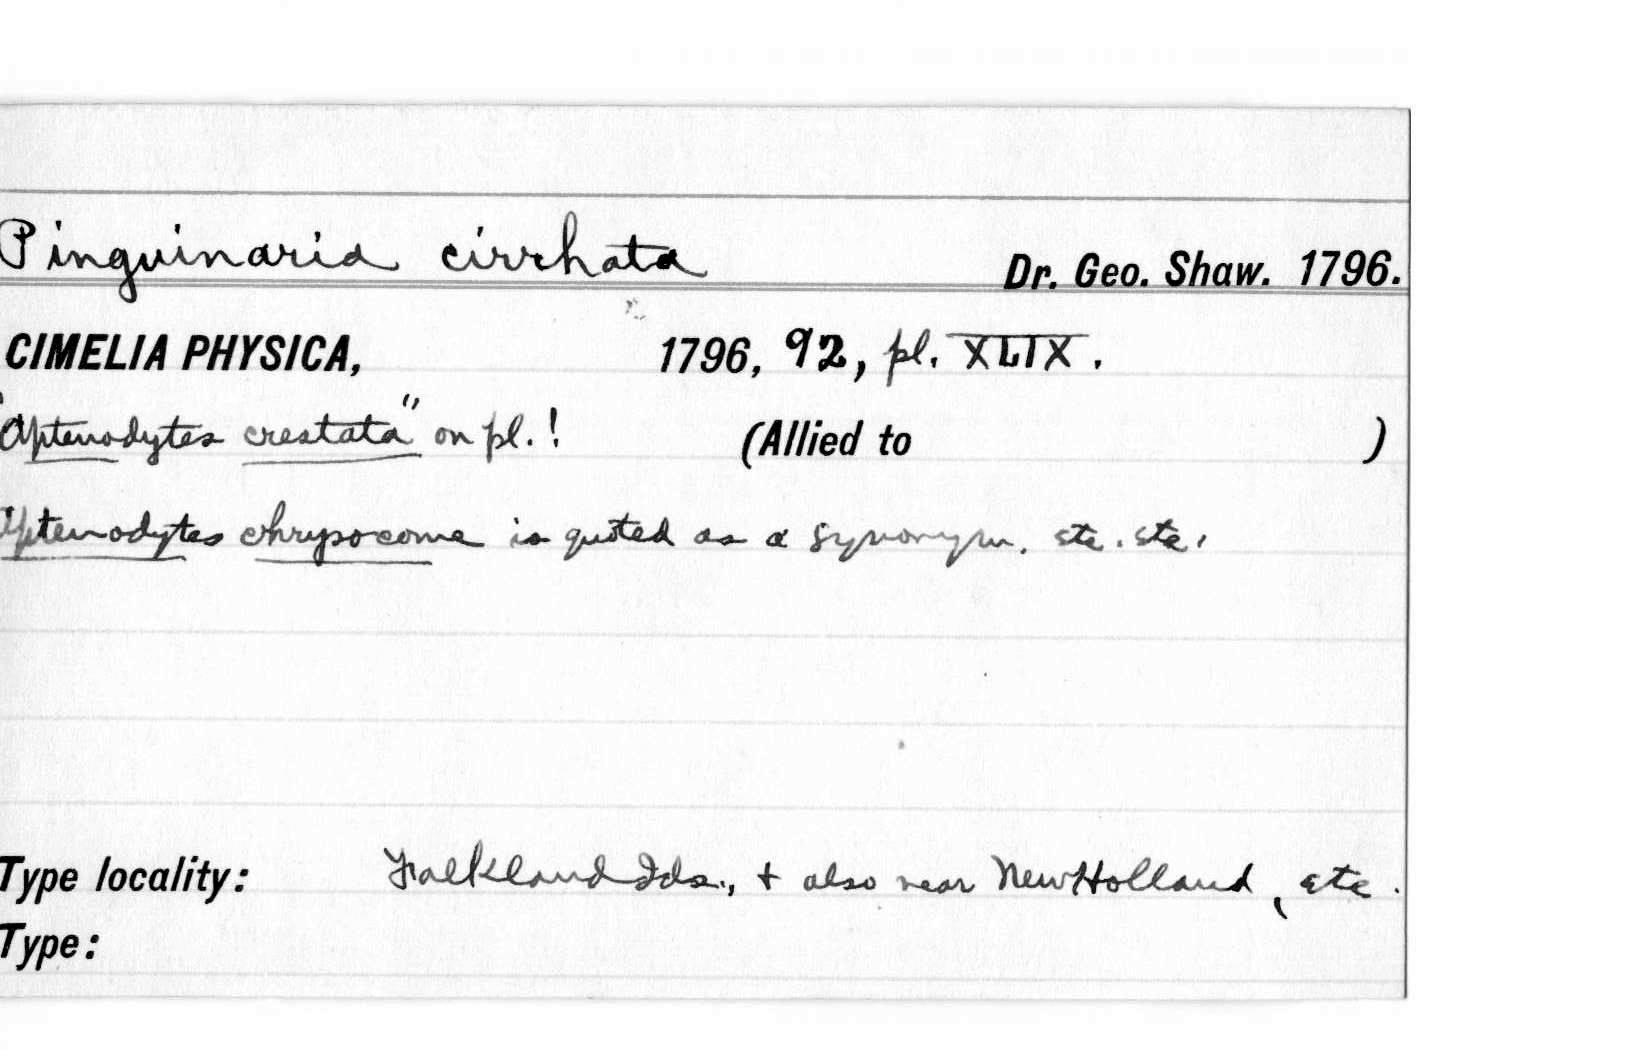 Pinguinaria cirrhata Dr. Geo. Shaw. 1796.
CIMELIA PHYSICA, 1796, 92, pl. XLIX.
"Aptenodytes crestata" on pl.! (Allied to )
Aptenodytes chrysocome is quoted as a synonym. etc. etc.
Type locality: Falkland Ids., + also near New Holland, etc.
Type: